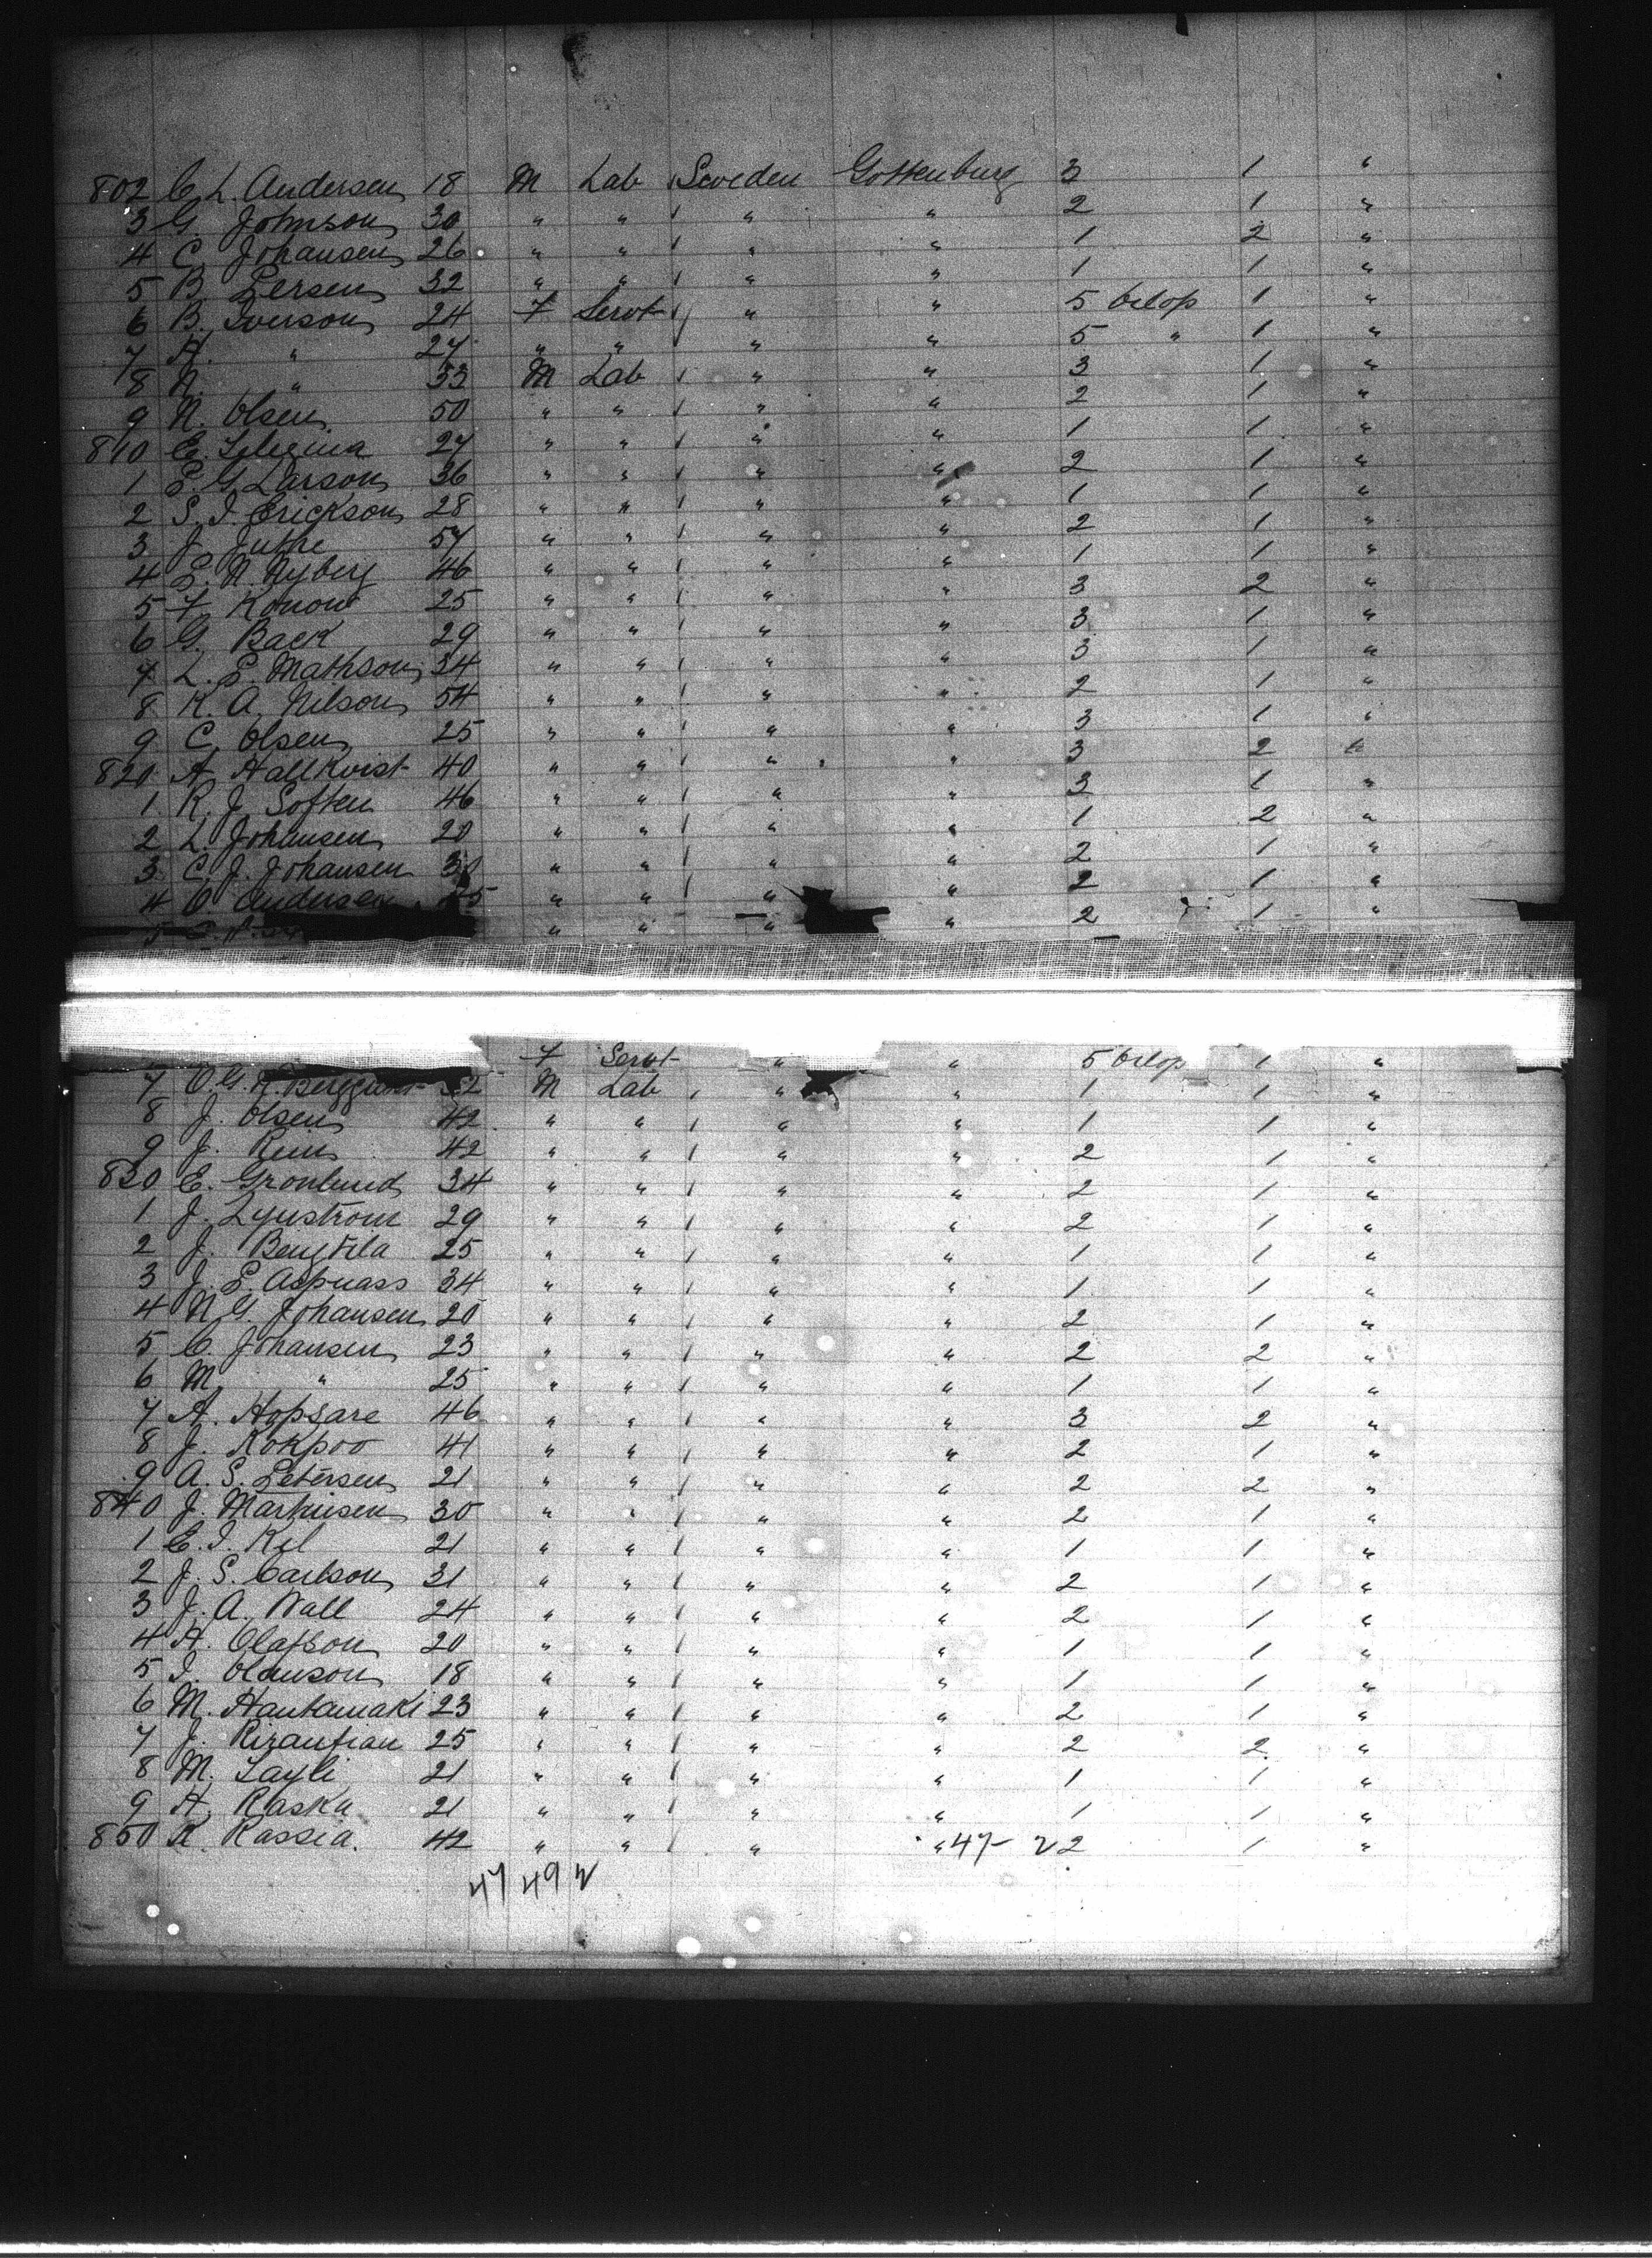 802 C. L. Andersen 18 M Lab / Sweden Gottenburg 3 1 "
3 G. Johnson 30 " " / " " 2 1 "
4 C. Johansen 26 " " / " " 1 2 "
5 B. Persen 32 " " / " " 1 1 "
6 B. Iverson 24 F Servt / " " 5 orlop 1 "
7 H. " 27 " " " " 5 " 1 "
8 A. " 33 M Lab / " " 3 1 "
9 N. Olsen 50 " " / " " 2 1 "
810 E. 27 " " / " " 1 1 "
1 P. G. Larson 36 " " / " " 2 1 "
2 S. I. Erickson 28 " " / " " 1 1 "
3 J. Juthe 57 " " / " " 2 1 "
4 P. N. Nyberg 46 " " / " " 1 1 "
5 F. Konow 25 " " / " " 3 2 "
6 G. Back 29 " " / " " 3 1 "
7 L. P. Mathson 34 " " / " " 3 1 "
8 K. A. Nilson 54 " " / " " 2 1 "
9 C. Olsen 25 " " / " " 3 1 "
820 A. Hallkvist 40 " " / " " 3 2 "
1 R. J. Soften 46 " " / " " 3 1 "
2 L. Johansen 20 " " / " " 1 2 "
3 C. J. Johansen " " / " " 2 1 "
4 O. Andersen " " / " " 2 1 "
5 " " " " 2 1 "
F Servt " " 5 orlop 1 "
7 O. G. A. 32 M Lab / " " 1 1 "
8 J. Olsen 42 " " / " " 1 1 "
9 J. 42 " " / " " 2 1 "
830 E. Gronlund 34 " " / " " 2 1 "
1 J. Lynstrom 29 " " / " " 2 1 "
2 J. 25 " " / " " 1 1 "
3 J. E. Aspnass 34 " " / " " 1 1 "
4 N. G. Johansen 20 " " / " " 2 1 "
5 C. Johansen 23 " " / " " 2 2 "
6 M. " 25 " " / " " 1 1 "
7 A. Hopsare 46 " " / " " 3 2 "
8 J. Kokpoo 41 " " / " " 2 1 "
9 A. S. Petersen 21 " " / " " 2 2 "
840 J. Martinsen 30 " " / " " 2 1 "
1 E. I. Kil 21 " " / " " 1 1 "
2 J. S. Carlson 31 " " / " " 2 1 "
3 J. A. Wall 24 " " / " " 2 1 "
4 A. Olafson 20 " " / " " 1 1 "
5 I. Olauson 18 " " / " " 1 1 "
6 M. Hautamaki 23 " " / " " 2 1 "
7 J. 25 " " / " " 2 2 "
8 M. 21 " " / " " 1 1 "
9 H. Raska 21 " " / " " 1 1 "
850 K. Kassia 42 " " / " " 47- 2 2 1 "
47 49 2